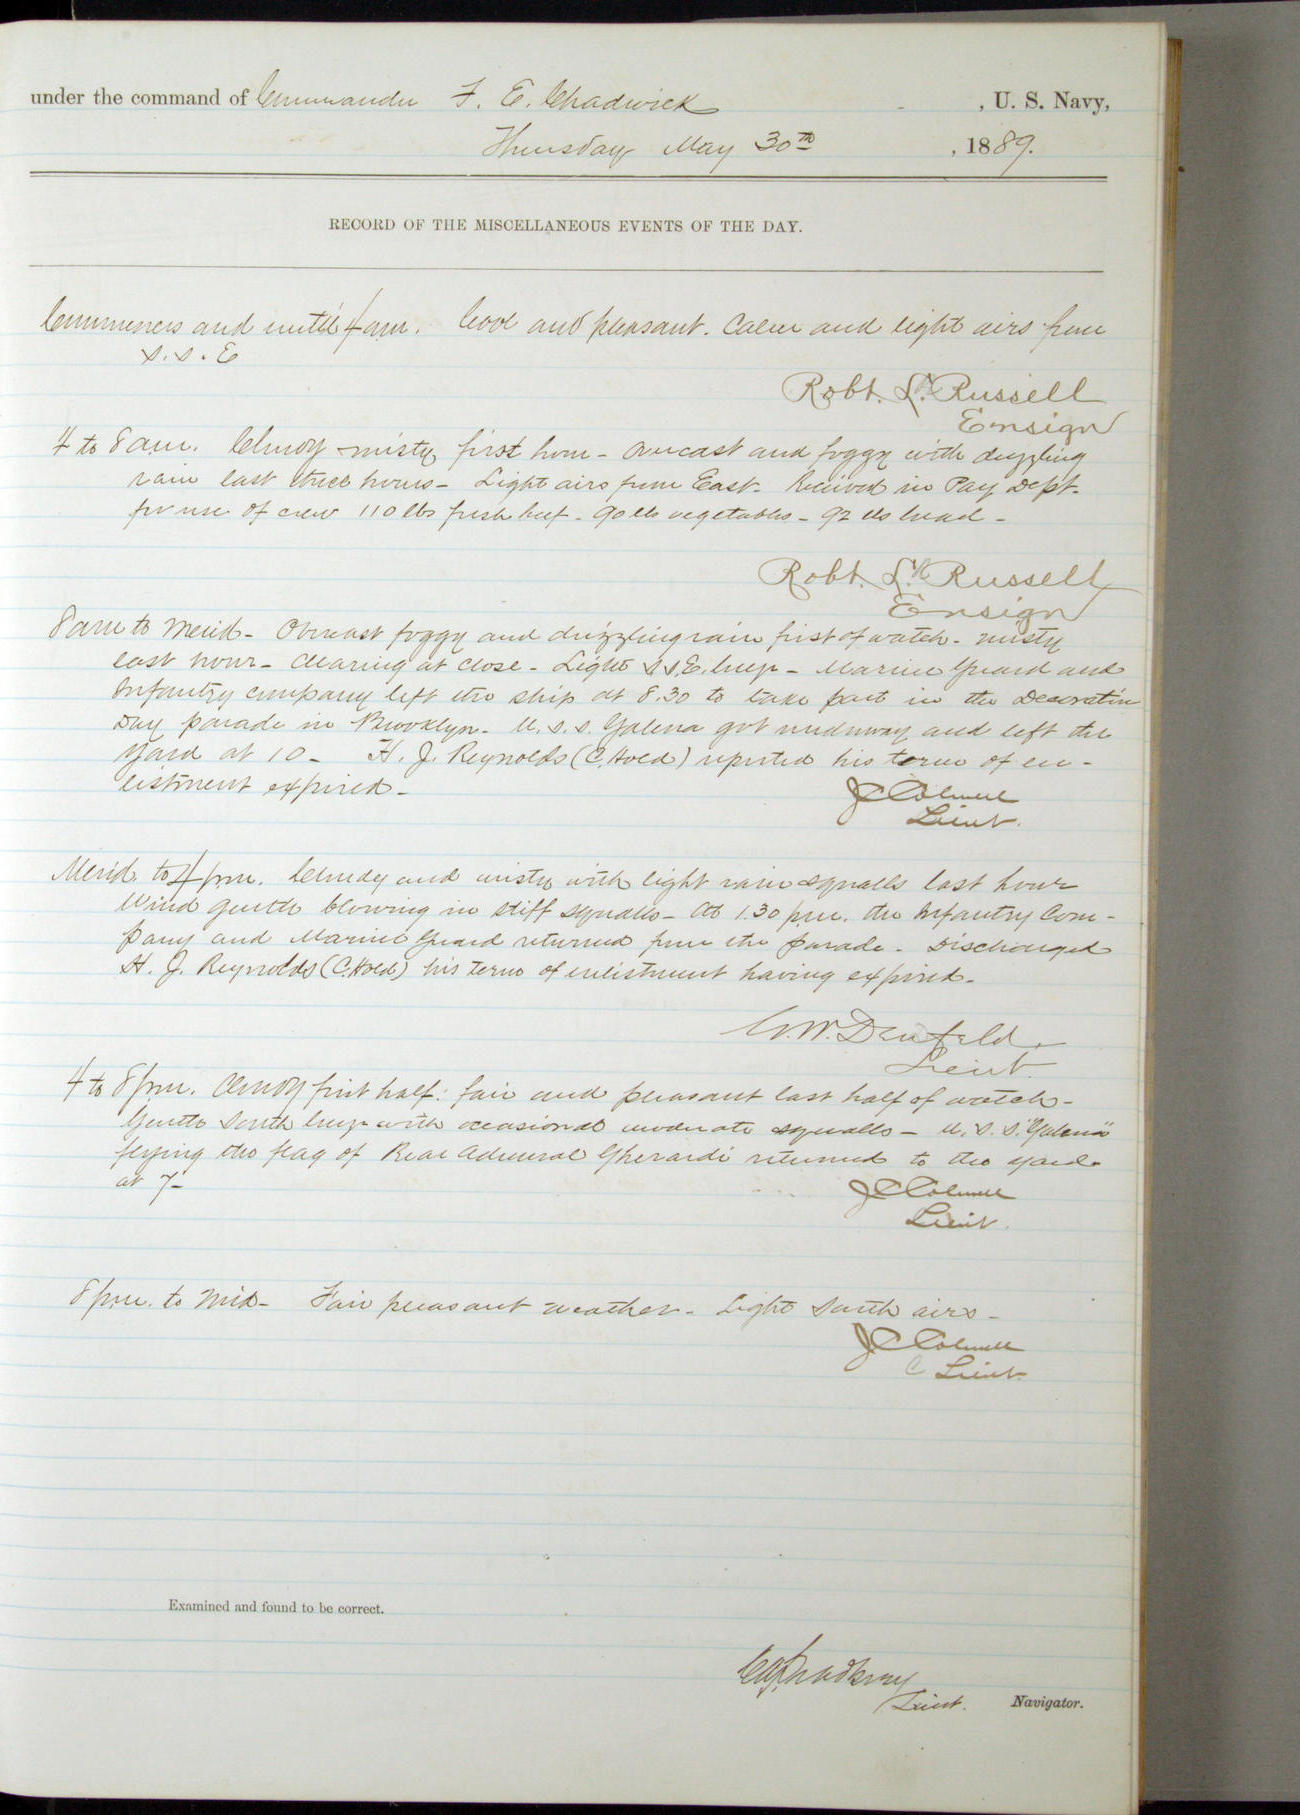 under the command of Commander F. E. Chadwick , U. S. Navy,
Thursday May 30th , 1889.
RECORD OF THE MISCELLANEOUS EVENTS OF THE DAY.
Commences and until 4 a.m. Cool and pleasant. Calm and light airs from
S. S. E
Robt. L. Russell
Ensign
4 to 8 a.m. Cloudy misty first hour - overcast and foggy with drizzling
rain last three hours - Light airs from East. Received in Pay Dept.
for use of crew 110 lbs fresh beef - 90 lbs vegetables - 92 lbs bread -
Robt. L. Russell
Ensign
8 am to Merid - Overcast foggy and drizzling rain first of watch - misty
last hour - Clearing at close - Light S.S.E. breeze - Marine Guard and
Infantry company left the ship at 8.30 to take part in the Decoration
Day parade in Brooklyn. U. S. S. Galena got underway and left the
Yard at 10 - H. J. Reynolds (C. Hold) reported his term of en-
listment expired -
J C Colwell
Lieut.
Merid. to 4 p.m. Cloudy and misty with light rain squalls last hour
Wind gentle blowing in stiff squalls - At 1.30 p.m. the Infantry Com-
pany and Marine Guard returned from the parade - Discharged
H. J. Reynolds (C. Hold) his term of enlistment having expired.
G. W. Denfeld.
Lieut
4 to 8 p.m. Cloudy first half: fair and pleasant last half of watch -
Gentle South breeze with occasional moderate squalls - U. S. S. "Galena"
flying the flag of Rear Admiral Gherardi returned to the yard
at 7 -
J C Colwell
Lieut.
8 p.m. to Mid - Fair pleasant weather - Light South airs -
J C Colwell
Lieut.
Examined and found to be correct.
Lieut. Navigator.